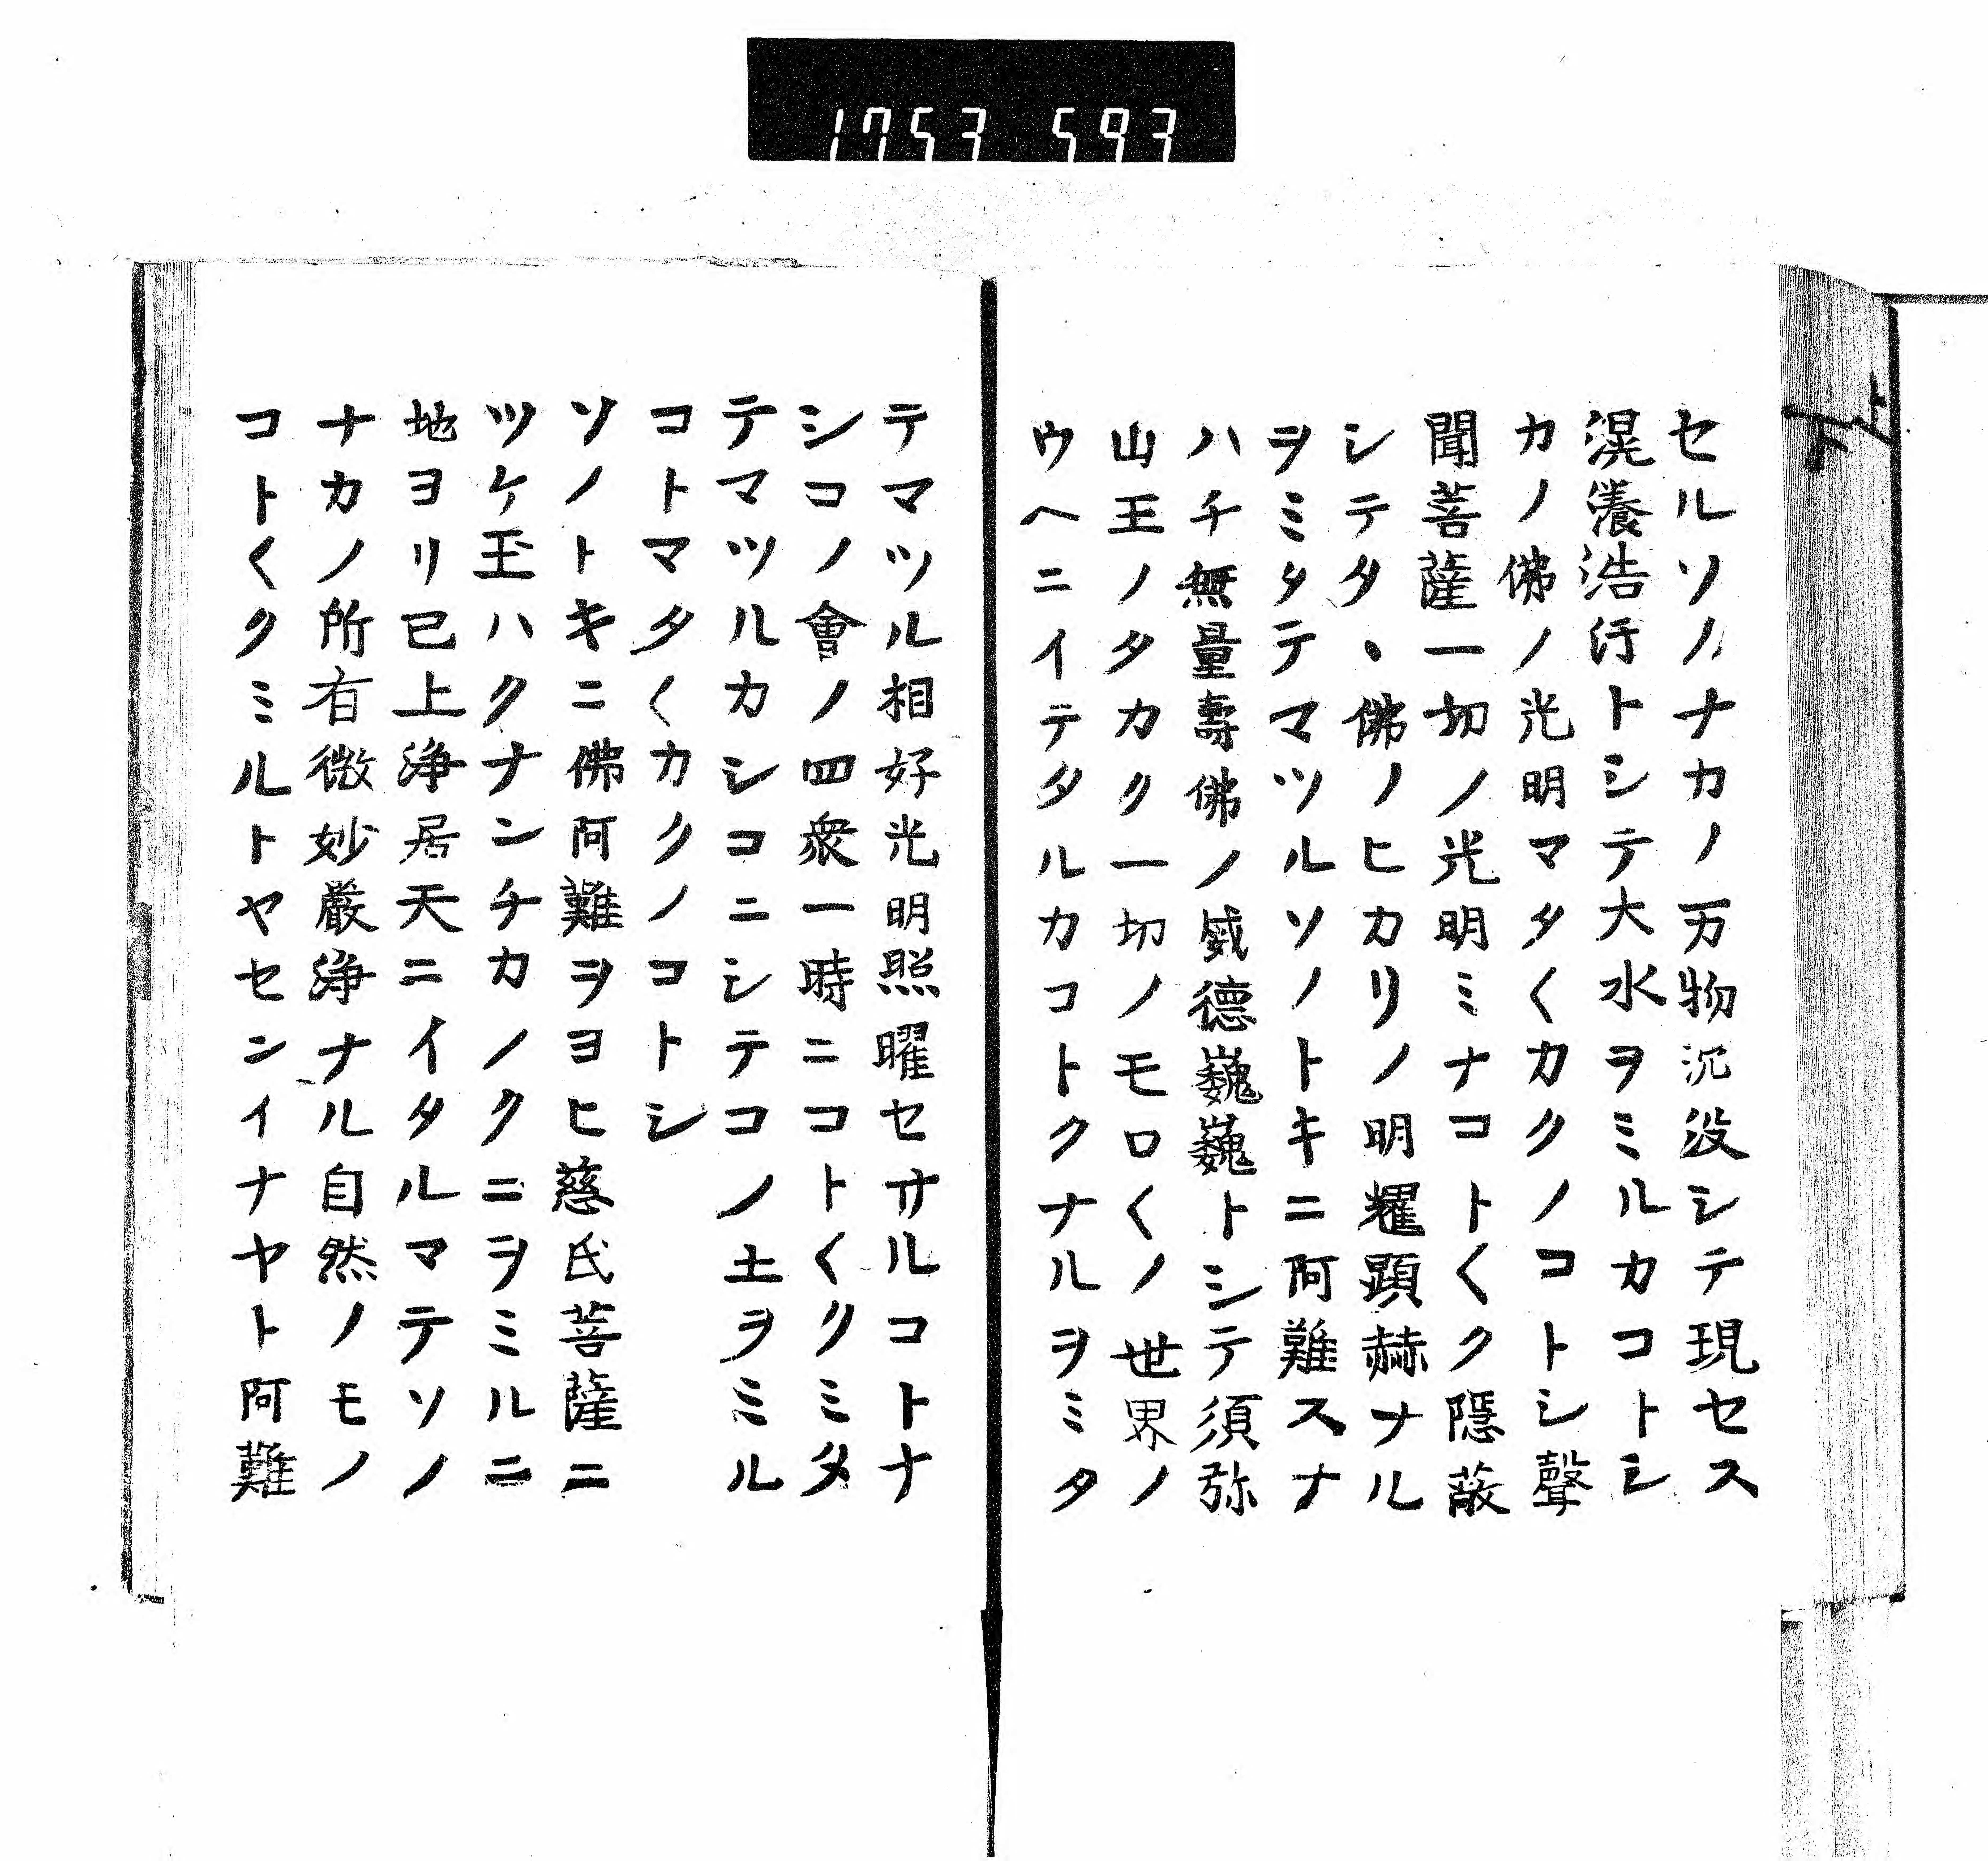 1753 593
セルソノナカノ万物沉没シテ現セス
滉瀁浩汗トシテ大水ヲミルカコトシ
カノ佛ノ光明マタ〱カクノコトシ聲
聞菩薩一切ノ光明ミナコト〱ク隱蔽
シテタヽ佛ノヒカリノ明耀顕赫ナル
ヲミタテマツルソノトキニ阿難スナ
ハチ無量壽佛ノ威德巍巍トシテ須弥
山王ノタカク一切ノモロ〱ノ世界ノ
ウヘニイテタルカコトクナルヲミタ
テマツル相好光明照曜セサルコトナ
シコノ會ノ四衆一時ニコト〱クミタ
テマツルカシコニシテコノ土ヲミル
コトマタ〱カクノコトシ
ソノトキニ佛阿難ヲヨヒ慈氏菩薩ニ
ツケ玉ハクナンチカノクニヲミルニ
地ヨリ已上浄居天ニイタルマテソノ
ナカノ所有微妙嚴浄ナル自然ノモノ
コト〱クミルトヤセンイナヤト阿難